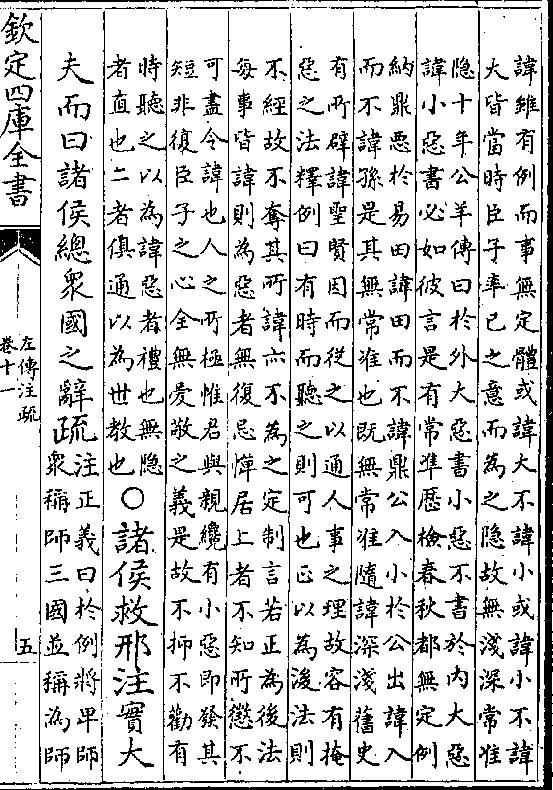 諱雖有例而事無定體或諱大不諱小或諱小不諱
大皆當時臣子率已之意而為之隐故無淺深常准
隐十年公羊傳曰於外大惡書小惡不書於内大惡
諱小惡書必如彼言是有常準歴檢春秋都無定例
納鼎惡於易田諱田而不諱鼎公入小於公出諱入
而不諱孫是其無常准也既無常准隨諱深淺舊史
有所辟諱聖賢因而從之以通人事之理故容有掩
惡之法釋例曰有時而聽之則可也正以為後法則
不經故不奪其所諱亦不為之定制言若正為後法
每事皆諱則為惡者無復忌憚居上者不知所懲不
可盡令諱也人之所極惟君與親纔有小惡即發其
短非復臣子之心全無愛敬之義是故不抑不勸有
時聽之以為諱惡者禮也無隐
者直也二者俱通以為世教也
○諸侯救邢注實大
夫而曰諸侯總衆國之辭疏
注正義曰於例將卑師
衆稱師三國並稱為師
欽定四庫全書
左傳注疏
卷十一
五